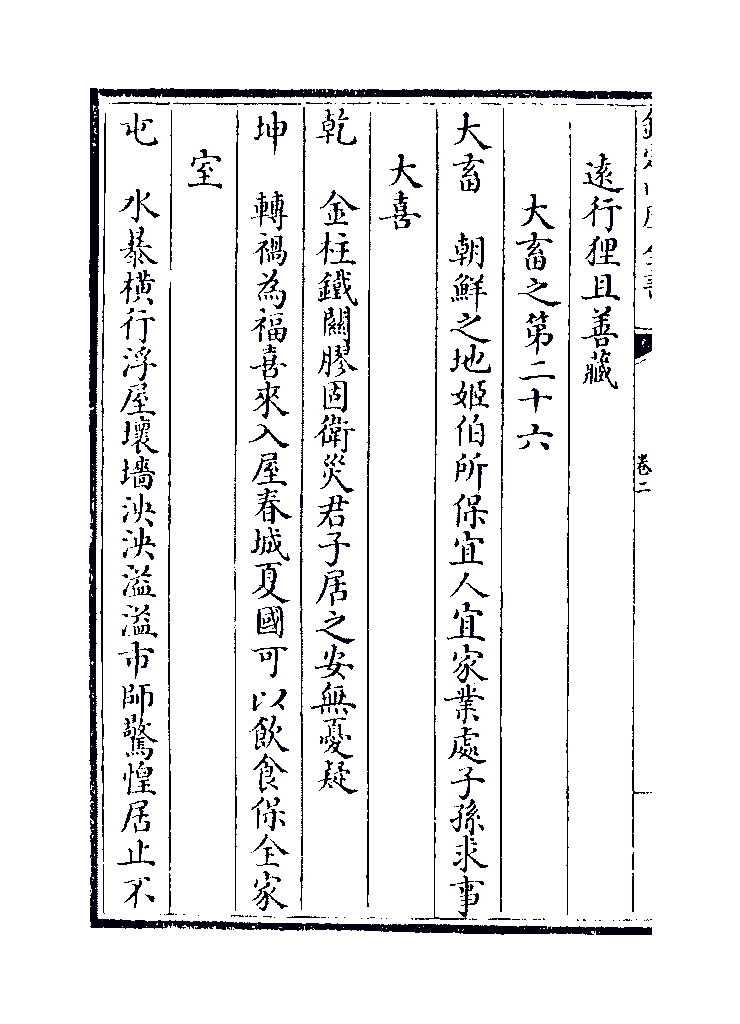 卷二
遠行狸且善藏
大畜之第二十六
大畜 朝鮮之地姬伯所保宜人宜家業處子孫求事
大喜
乾 金柱鐵關膠固衛災君子居之安無憂疑
坤 轉禍為福喜來入屋春城夏國可以飲食保全家
室
屯 水暴橫行浮屋壞墻泱泱溢溢市師驚惶居止不